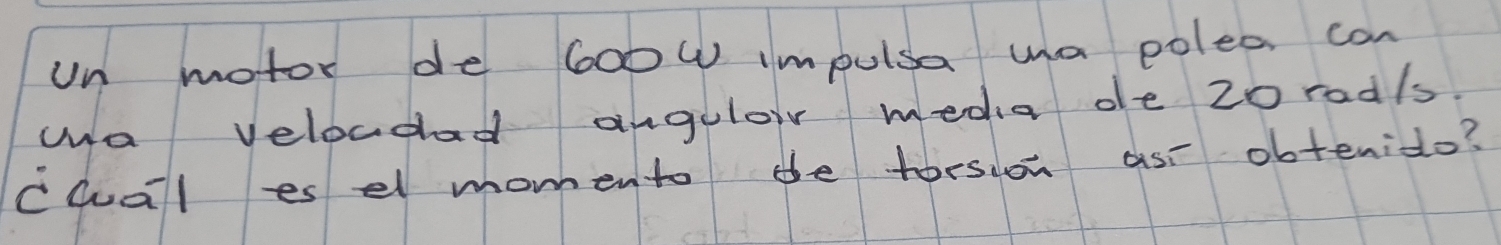 un motor de 600W impulsa una polea con
una velocidad angular media de 20 rad/s.
¿Cuál es el momento de torsión así obtenido?